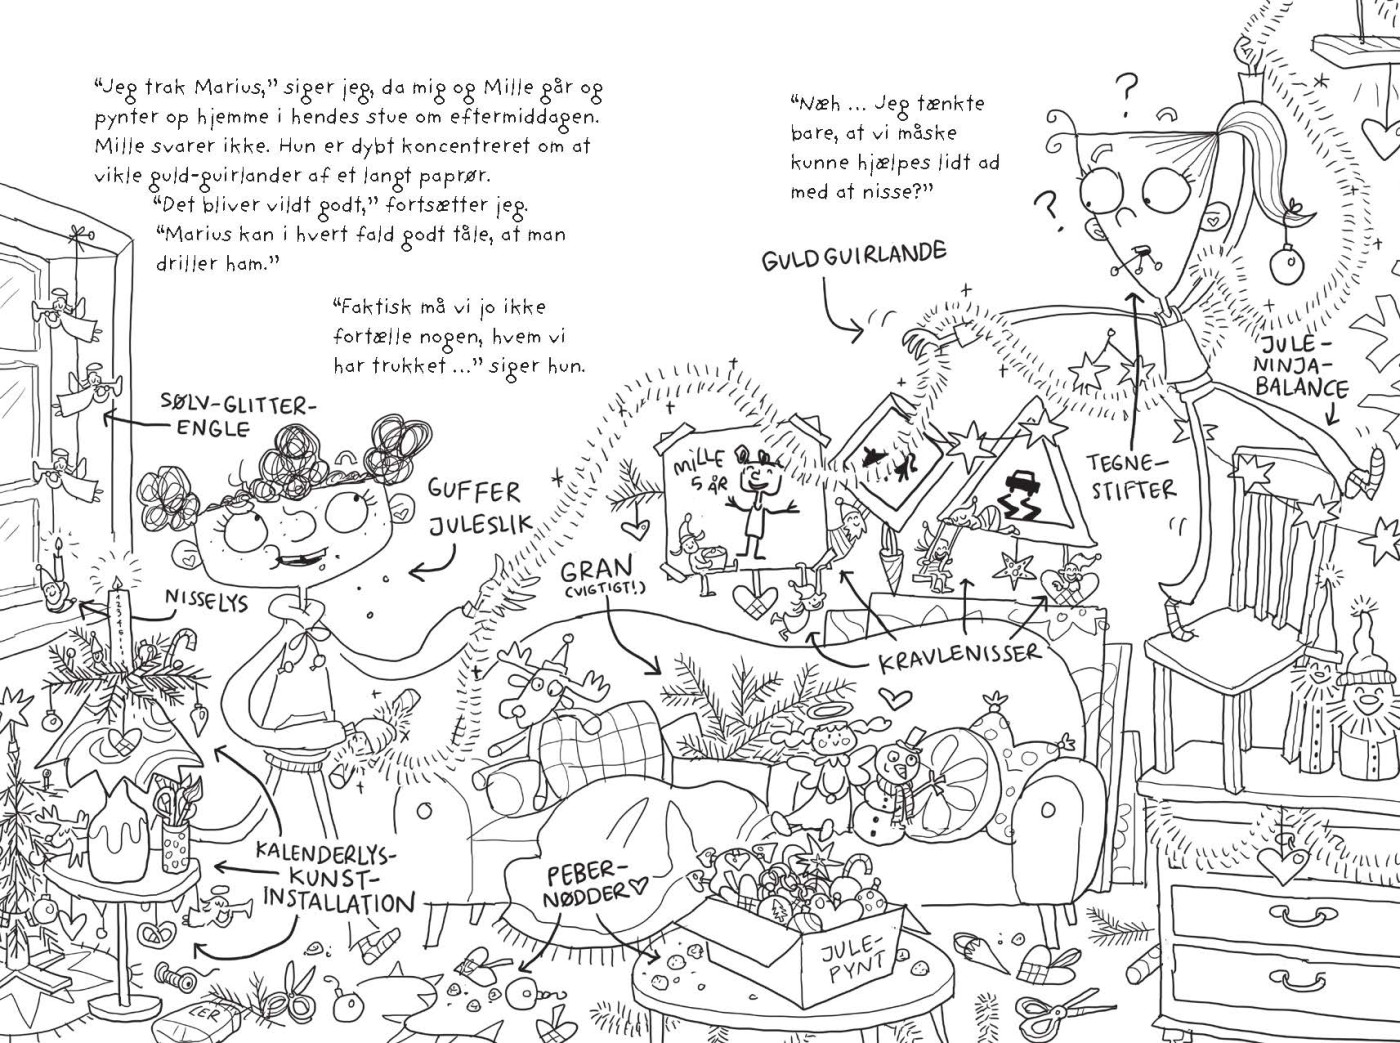 “Jeg trak Marius,” siger jeg, da mig og Mille går og
pynter op hjemme i hendes stue om eftermiddagen.
Mille svarer ikke. Hun er dybt koncentreret om at
vikle guld-guirlander af et langt paprør.
“Det bliver vildt godt,” fortsætter jeg.
“Marius kan i hvert fald godt tåle, at man
driller ham.”
“Faktisk må vi jo ikke
fortælle nogen, hvem vi
har trukket ...” siger hun.
“Næh ... Jeg tænkte
bare, at vi måske
kunne hjælpes lidt ad
med at nisse?”
?
?
GULDGUIRLANDE
JULE-
NINJA-
BALANCE
SØLV-GLITTER-
ENGLE
GUFFER
JULESLIK
MILLE
5 ÅR
TEGNE-
STIFTER
GRAN
(VIGTIGT!)
NISSELYS
1
2
3
4
KRAVLENISSER
KALENDERLYS-
KUNST-
INSTALLATION
PEBER-
NØDDER
JULE-
PYNT